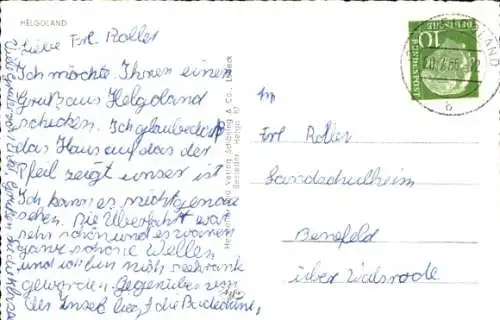 HELGOLAND
Liebe Frl Roller
Ich möchte Ihnen einen
Gruß aus Helgoland
schicken. Ich glaube daß
das Haus auf das der
Pfeil zeigt unser ist
Ich kann es nicht genau
sehen. Die Überfahrt war
sehr schön und es waren
ganz schöne Wellen
und ich bin nich seekrank
geworden. Gegenüber von
der Insel liegt die Badedüne,
Schöning & Co., Lübeck
DEUTSCHE
BUNDESPOST
10
b
An
Frl Roller
Landschulheim
Benefeld
über Walsrode